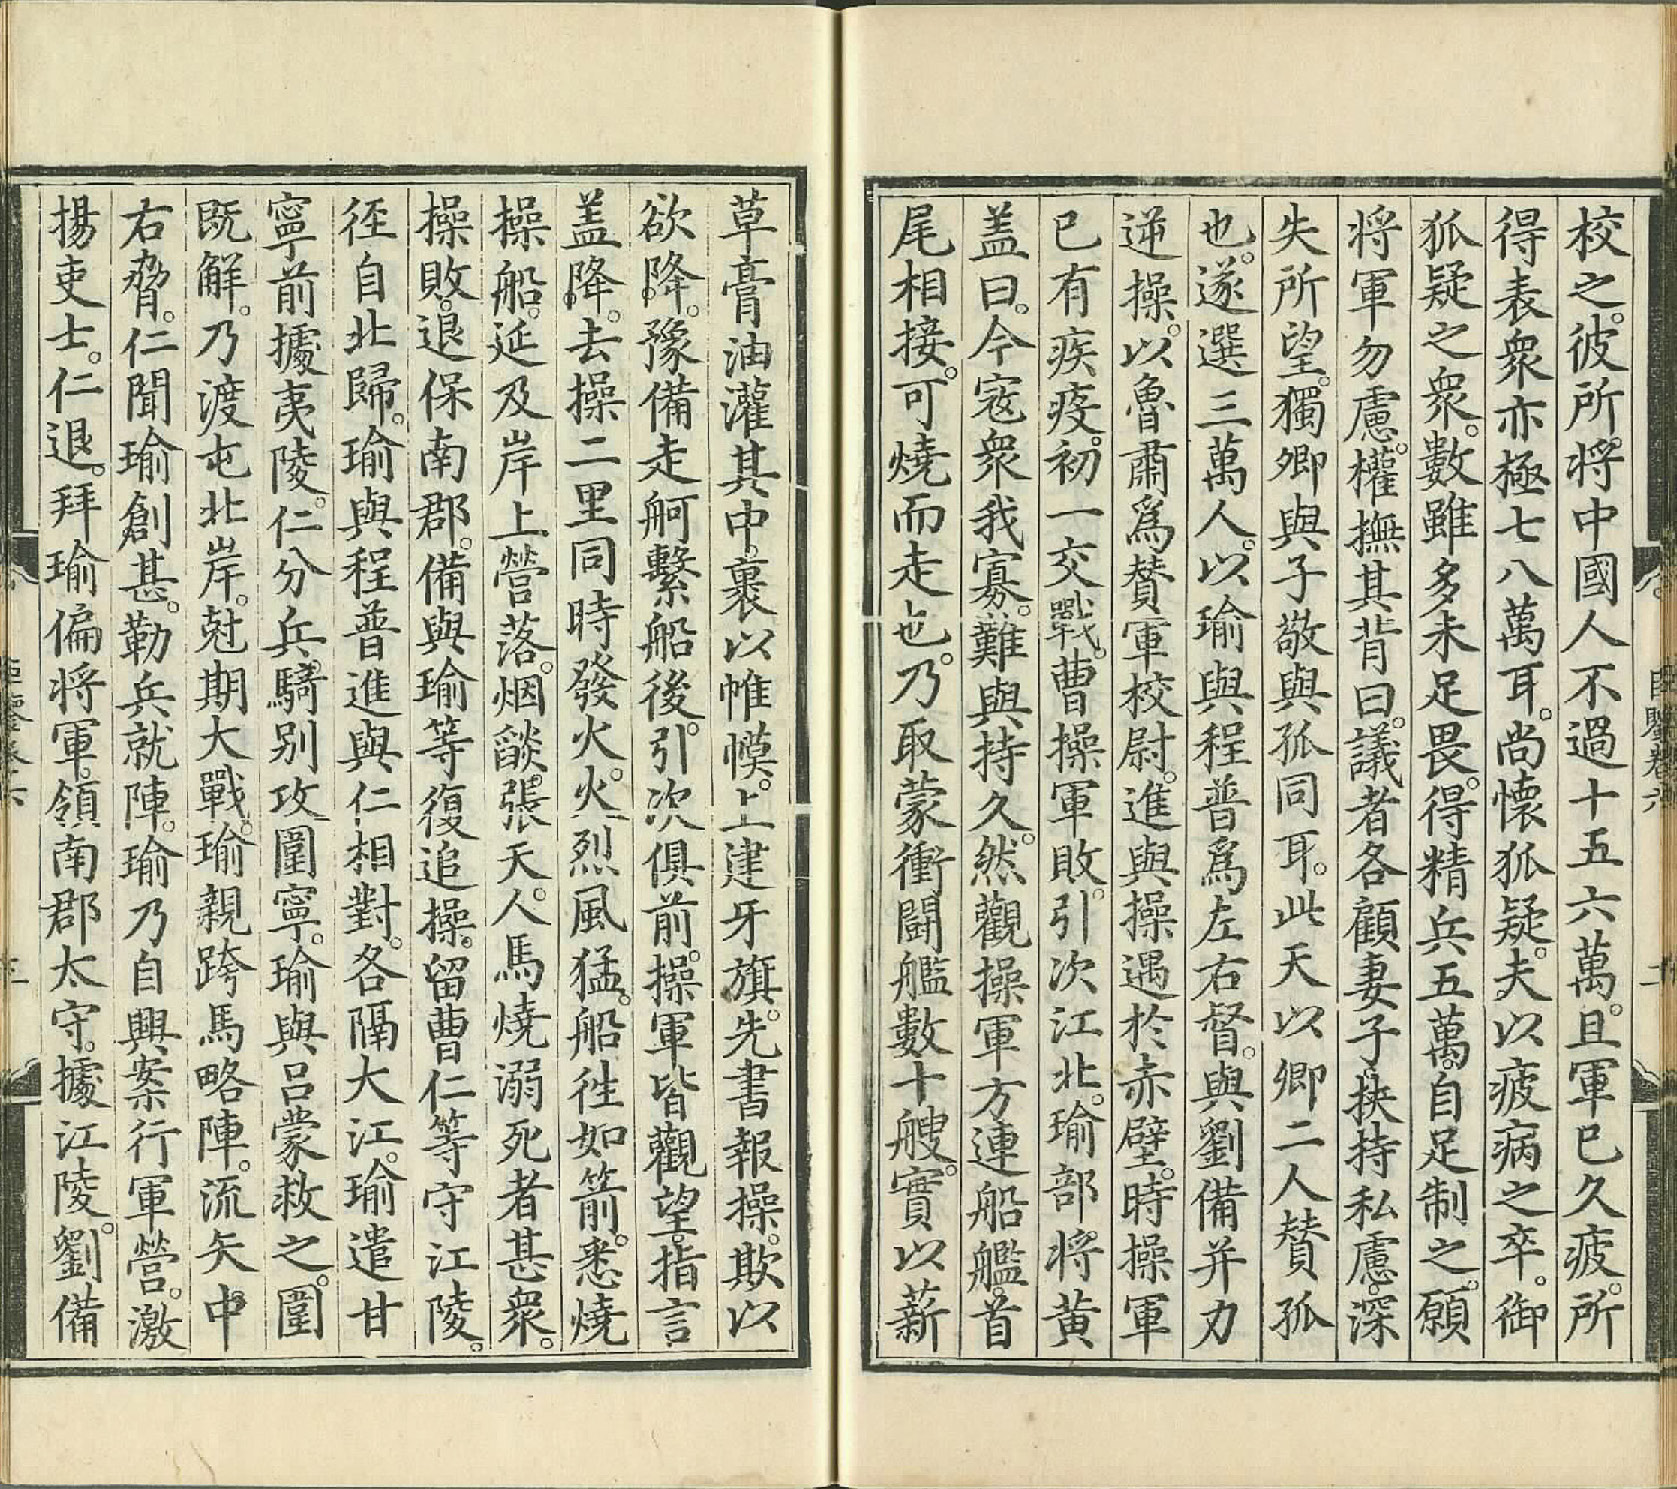 校之。彼所。將中國人不過十五六萬。且軍已久疲。所
得表衆亦極七八萬耳。尚懷狐疑。夫以疲病之卒。御
狐疑之衆。數雖多未足畏。得精兵五萬。自足制之。願
將軍勿慮。權撫其背曰。議者各顧妻子。挾持私慮。深
失所望。獨卿與子敬與孤同耳。此天以卿二人贊孤
也。遂選三萬人。以瑜與程普爲左右督。與劉備并力
逆操。以魯肅爲贊軍校尉。進與操遇於赤壁。時操軍
已有疾疫。初一交戰。曹操軍敗。引次江北。瑜部將黃
蓋曰。今寇衆我寡。難與持久。然觀操軍方連船艦。首
尾相接。可燒而走也。乃取蒙衝鬪艦數十艘。實以薪
草膏油灌其中。裹以帷幙。上建牙旗。先書報操。欺以
欲降。豫備走舸繫船後。引次俱前。操軍皆觀望。指言
盖降。去操二里同時發火。火烈風猛。船徃如箭。悉燒
操船。延及岸上營落。烟燄張天。人馬燒溺死者甚衆。
操敗。退保南郡。備與瑜等復追操。留曹仁等守江陵。
徑自北歸。瑜與程普進與仁相對。各隔大江。瑜遣甘
寧前據夷陵。仁分兵騎别攻圍寧。瑜與呂蒙救之。圍
既解。乃渡屯北岸。尅期大戰。瑜親跨馬略陣。流矢中
右脅。仁聞瑜創甚。勒兵就陣。瑜乃自興案行軍營。激
揚吏士。仁退。拜瑜偏將軍。領南郡太守。據江陵。劉備